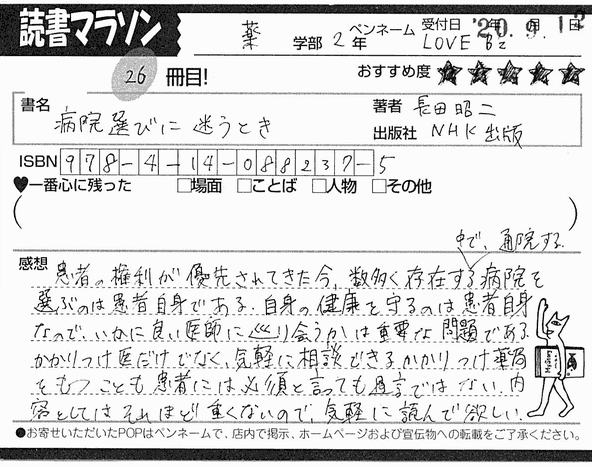 読書マラソン
薬 学部 2年 ペンネーム LOVE B'z 受付日 '20年 9月 12日
26 冊目! おすすめ度 ★★★★★
書名 病院選びに迷うとき
著者 長田昭二
出版社 NHK出版
ISBN 978-4-14-088237-5
♥一番心に残った □場面 □ことば □人物 □その他
( )
中で、通院する
感想 患者の権利が優先されてきた今、数多く存在する病院を
選ぶのは患者自身である。自身の健康を守るのは患者自身
なので、いかに良い医師に巡り会うかは重要な問題である。
かかりつけ医だけでなく、気軽に相談できるかかりつけ薬局
をもつことも患者には必須と言っても過言ではない。内
容としてはそれほど重くないので、気軽に読んで欲しい。
●お寄せいただいたPOPはペンネームで、店内で掲示、ホームページおよび宣伝物への転載をご了承ください。